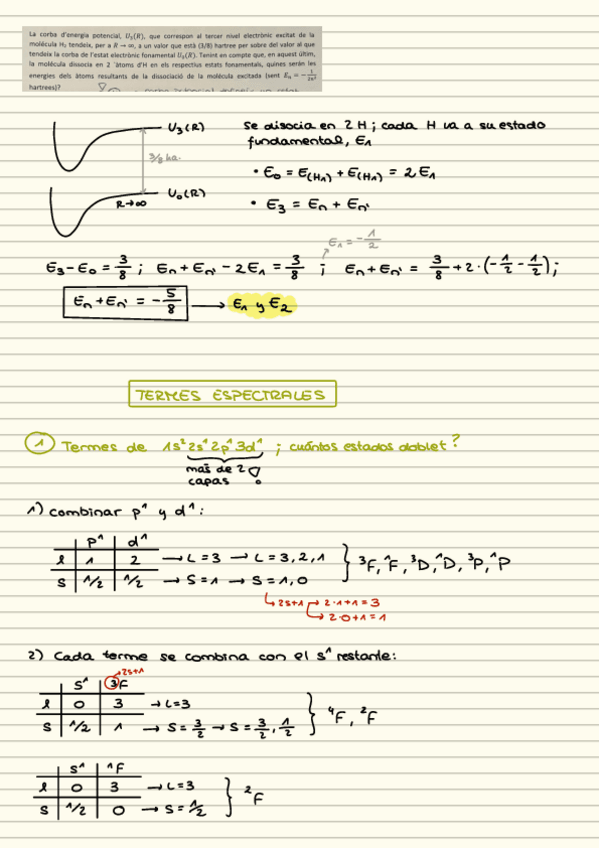 La corba d'energia potencial, U₃(R), que correspon al tercer nivell electrònic excitat de la
molècula H₂ tendeix, per a R → ∞, a un valor que està (3/8) hartree per sobre del valor al que
tendeix la corba de l'estat electrònic fonamental U₀(R). Tenint en compte que, en aquest últim,
la molècula dissocia en 2 àtoms d'H en els respectius estats fonamentals, quines seràn les
energies dels àtoms resultants de la dissociació de la molècula excitada (sent Eₙ = - 1/2n²
hartrees)?
U₃(R)
3/8 ha.
U₀(R)
R→∞
Se disocia en 2 H ; cada H va a su estado
fundamental, E₁
• E₀ = E(H₁) + E(H₁) = 2E₁
• E₃ = Eₙ + Eₙ'
E₁ = - 1/2
E₃ - E₀ = 3/8 ; Eₙ + Eₙ' - 2E₁ = 3/8 ; Eₙ + Eₙ' = 3/8 + 2·(-1/2 - 1/2);
Eₙ + Eₙ' = - 5/8 → E₁ y E₂
TERMES ESPECTRALES
1 Termes de 1s² 2s¹ 2p¹ 3d¹ ; cuántos estados doblet?
más de 2
capas !
1) combinar p¹ y d¹:
p¹ d¹
l 1 2 → L=3 → L=3,2,1
s 1/2 1/2 → S=1 → S=1,0
} ³F, ¹F, ³D, ¹D, ³P, ¹P
2s+1 → 2·1+1=3
→ 2·0+1=1
2) Cada terme se combina con el s¹ restante:
2s+1
s¹ ³F
l 0 3 → L=3
s 1/2 1 → S=3/2 → S=3/2, 1/2
} ⁴F, ²F
s¹ ¹F
l 0 3 → L=3
s 1/2 0 → S=1/2
} ²F